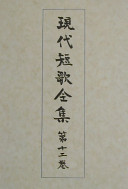 現代短歌全集
第十二巻